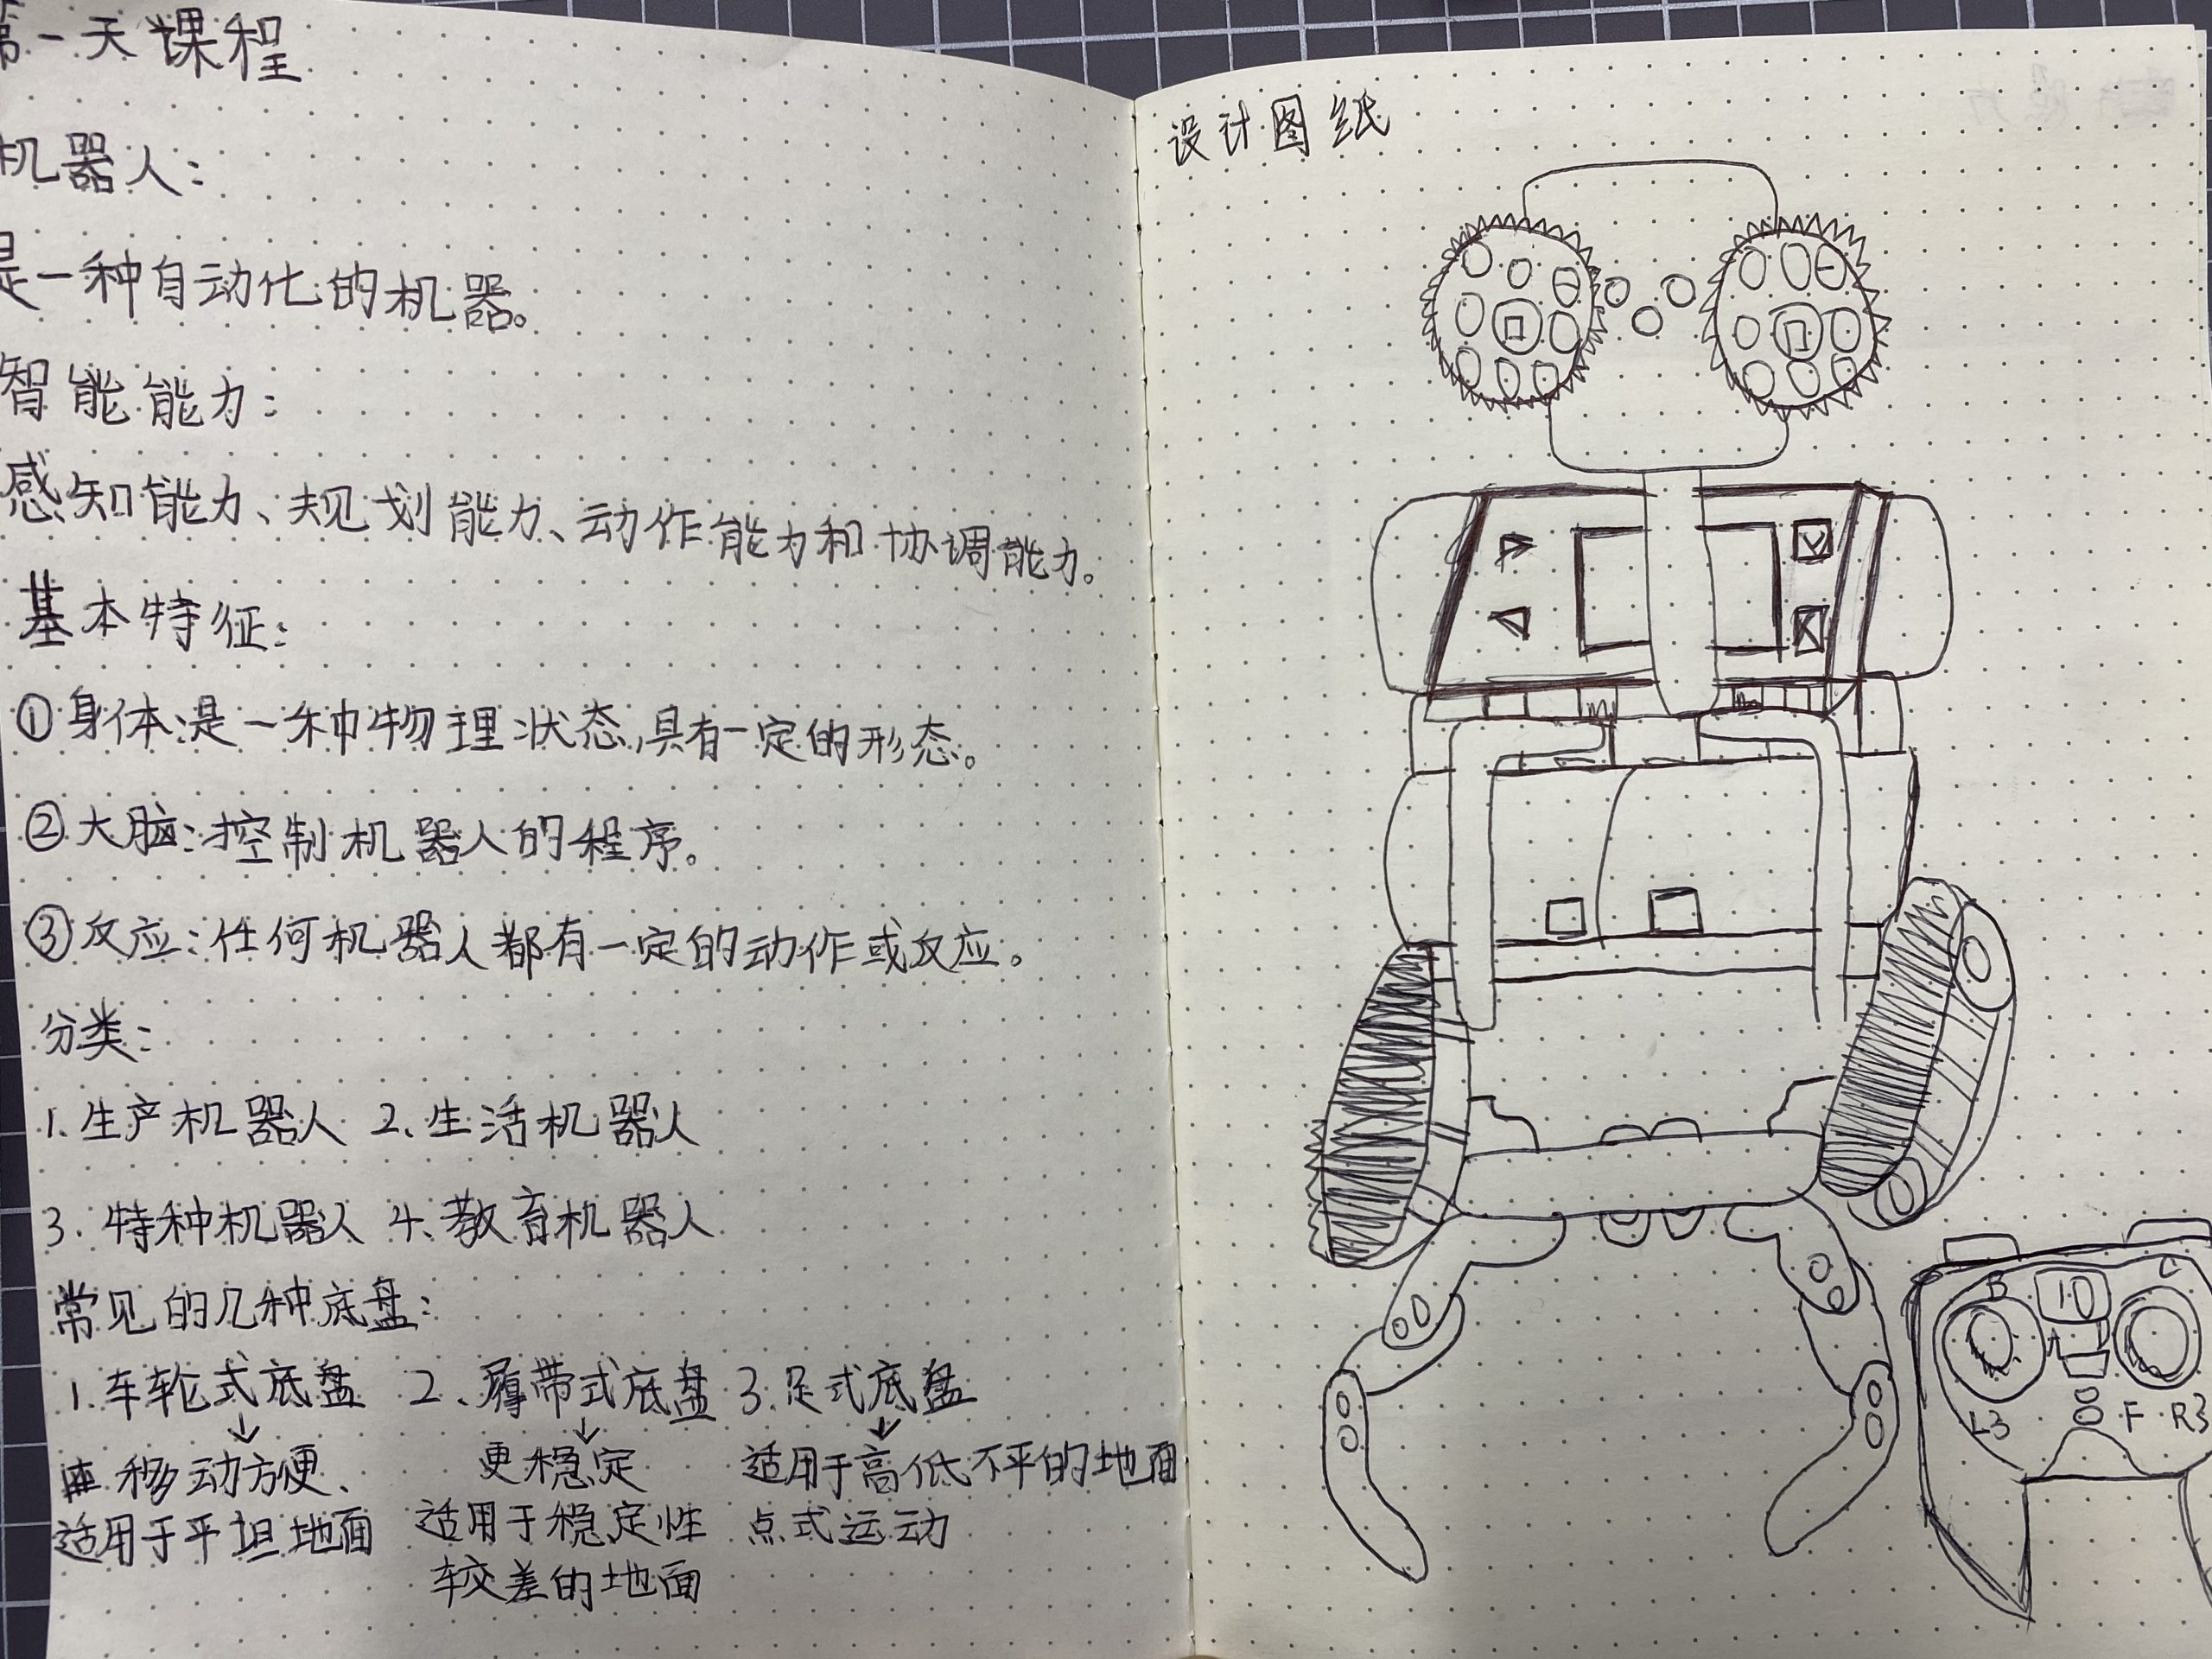 第一天课程
机器人:
是一种自动化的机器。
智能能力:
感知能力、规划能力、动作能力和协调能力。
基本特征:
①身体:是一种物理状态,具有一定的形态。
②大脑:控制机器人的程序。
③反应:任何机器人都有一定的动作或反应。
分类:
1.生产机器人 2.生活机器人
3.特种机器人 4.教育机器人
常见的几种底盘:
1.车轮式底盘 2.履带式底盘 3.足式底盘
↓ ↓ ↓
移动方便、
适用于平坦地面
更稳定
适用于稳定性
较差的地面
适用于高低不平的地面
点式运动
设计图纸
B
10
C
L3
F
R3